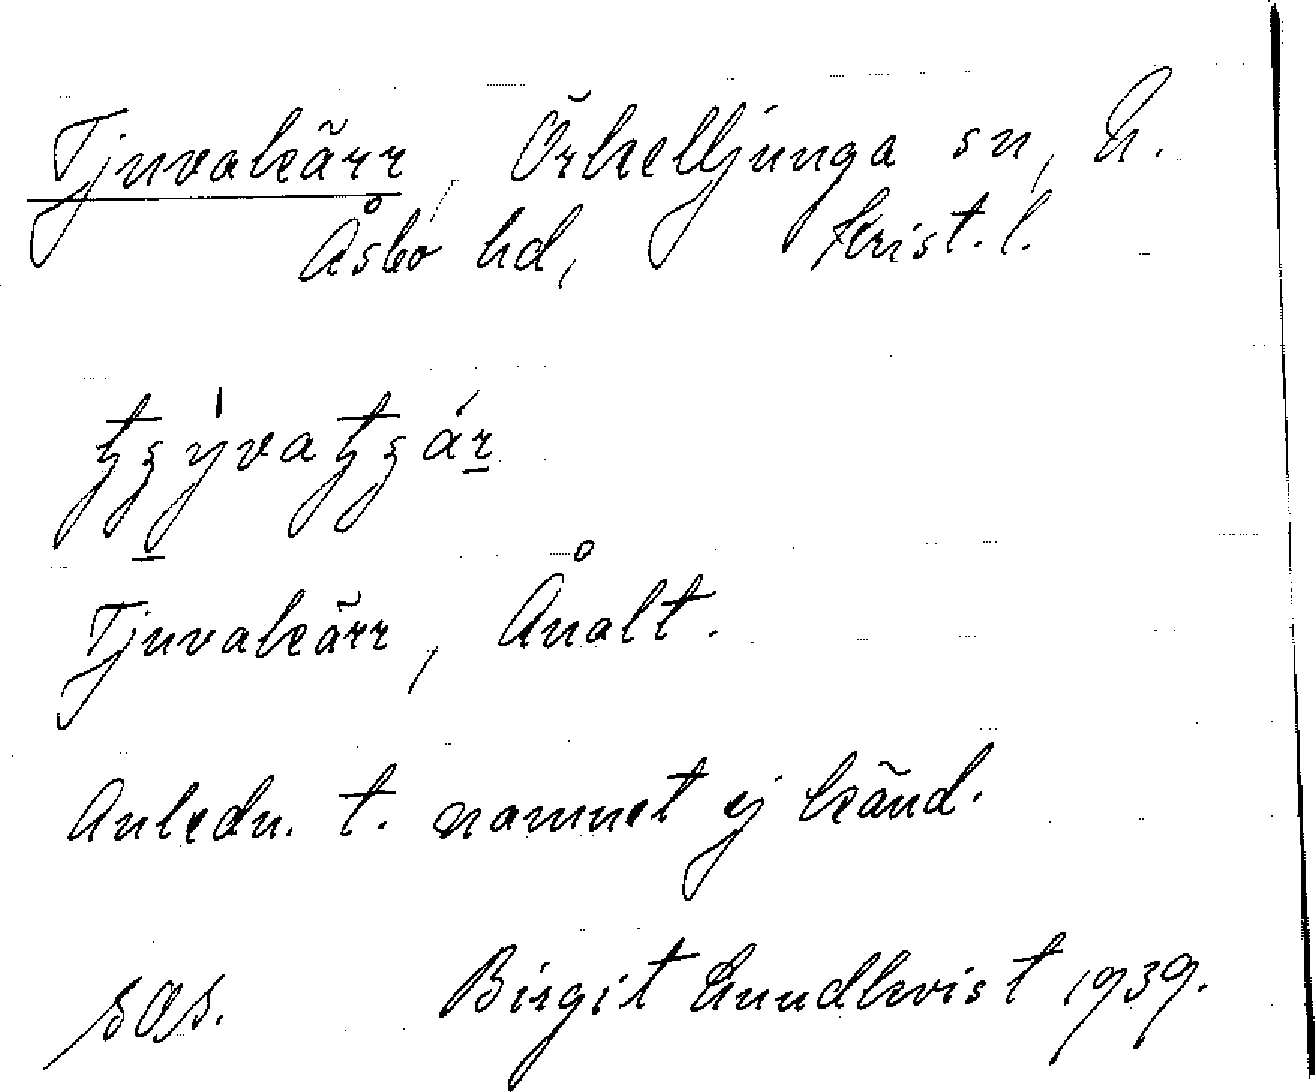 Tjuvakärr, Örkelljunga sn, N.
Åsbo hd, Krist. l.
Tjuvakärr, Åualt.
Anledn. t. namnet ej känd.
SOA. Birgit Lundkvist 1939.